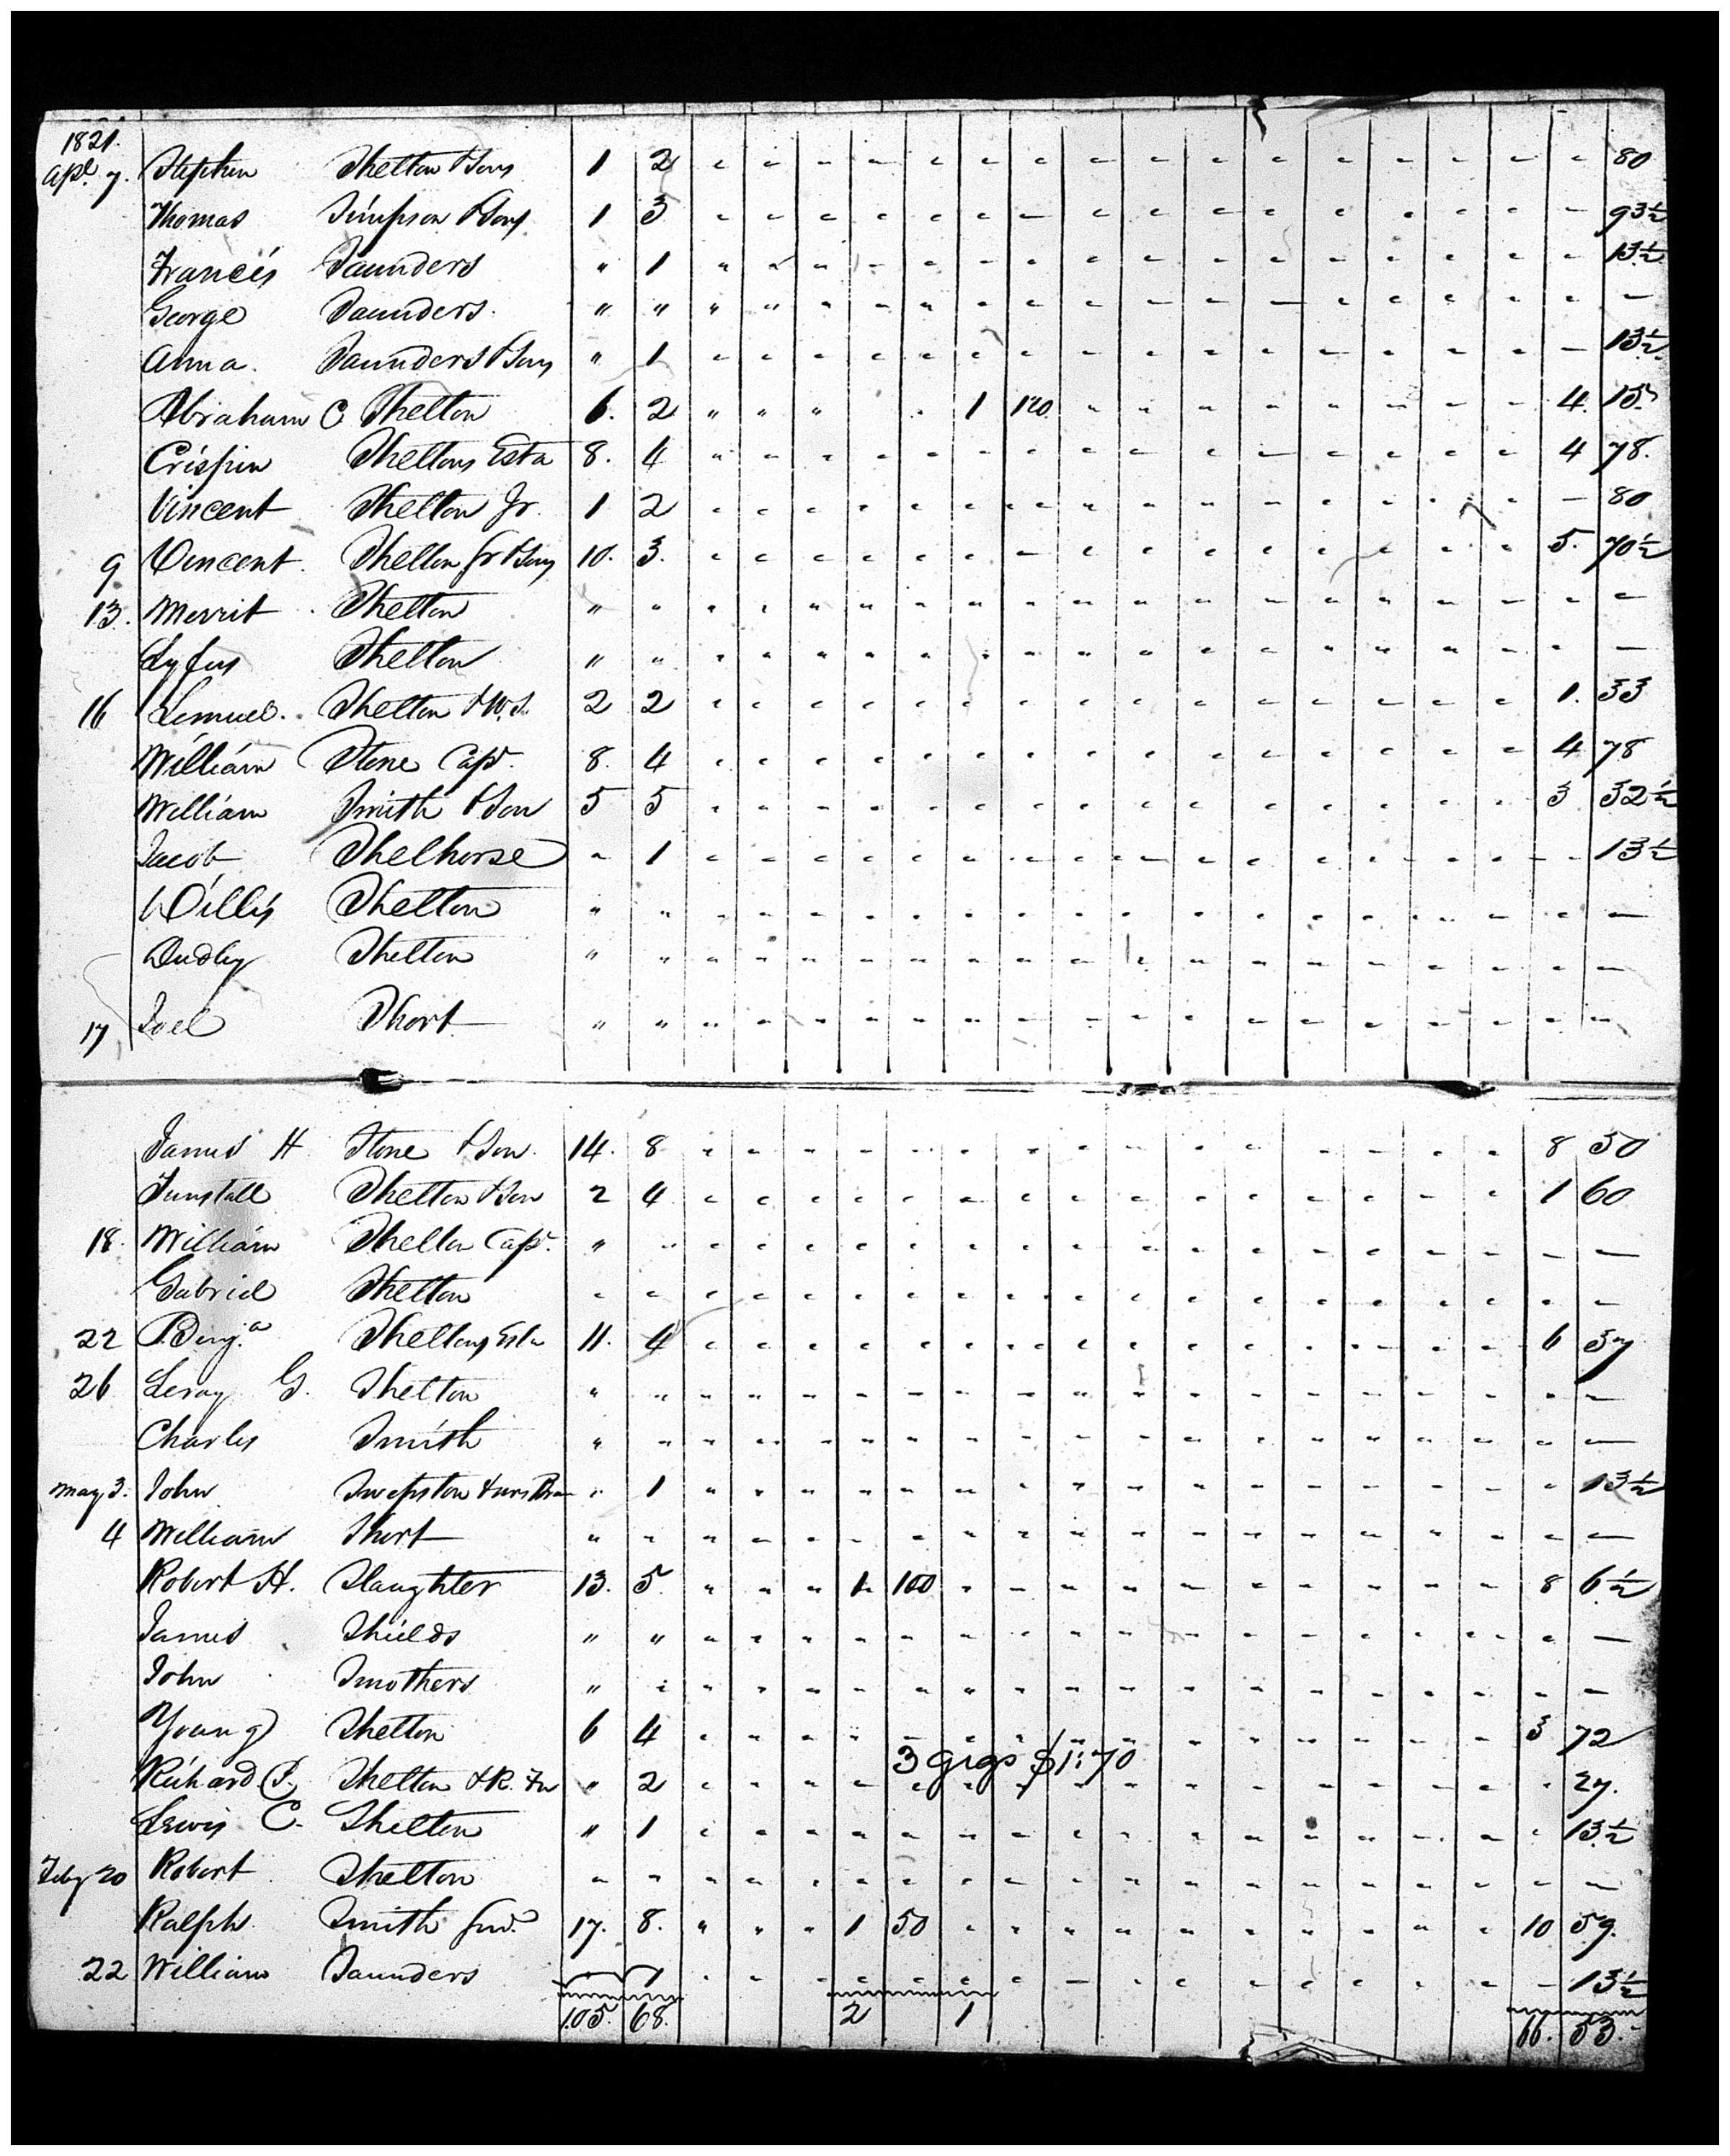 1821.
Apl. 7. Stephen Shelton & Sons 1 2 80
Thomas Simpson & Sons 1 3 93½
Francis Saunders " 1 13½
George Saunders. " " —
Anna. Saunders & Sons " 1 13½
Abraham C Shelton 6. 2 1 120 4. 15
Crispin Sheltons Esta 8. 4 4 78.
Vincent Shelton Jr. 1 2 80
9 Vincent. Shelton Sr & Sons 10. 3. 5. 70½
13. Merrit Shelton " "
Shelton " "
16 Lemuel. Shelton & W.S. 2 2 1. 33
William Stone Capt. 8. 4 4 78
William Smith & Son 5 5 3 32½
Jacob Shelhorse 1 13½
Willis Shelton " "
Dudley Shelton " "
17 Joel Short " "
James H Stone & Son. 14. 8 8 50
Tunstall Shelton & Son 2 4 1 60
18. William Shelton Capt. "
Gabriel Shelton
22 Benja. Sheltons Esta 11. 4 6 37
26 Leroy G. Shelton "
Charles Smith "
May 3. John Swepston 1 13½
4 William Short
Robert H. Slaughter 13. 5. 1 100 8 6½
James Shields " "
John Smothers "
Young Shelton 6 4 3 72
3 gigs $1:70
Richard Shelton " 2 27.
Lewis C. Shelton " 1 13½
Feby 20 Robert Shelton
Ralph Smith 17. 8. 1 50 10 59.
22 William Saunders 1 13½
105. 68. 2 1 66. 53.